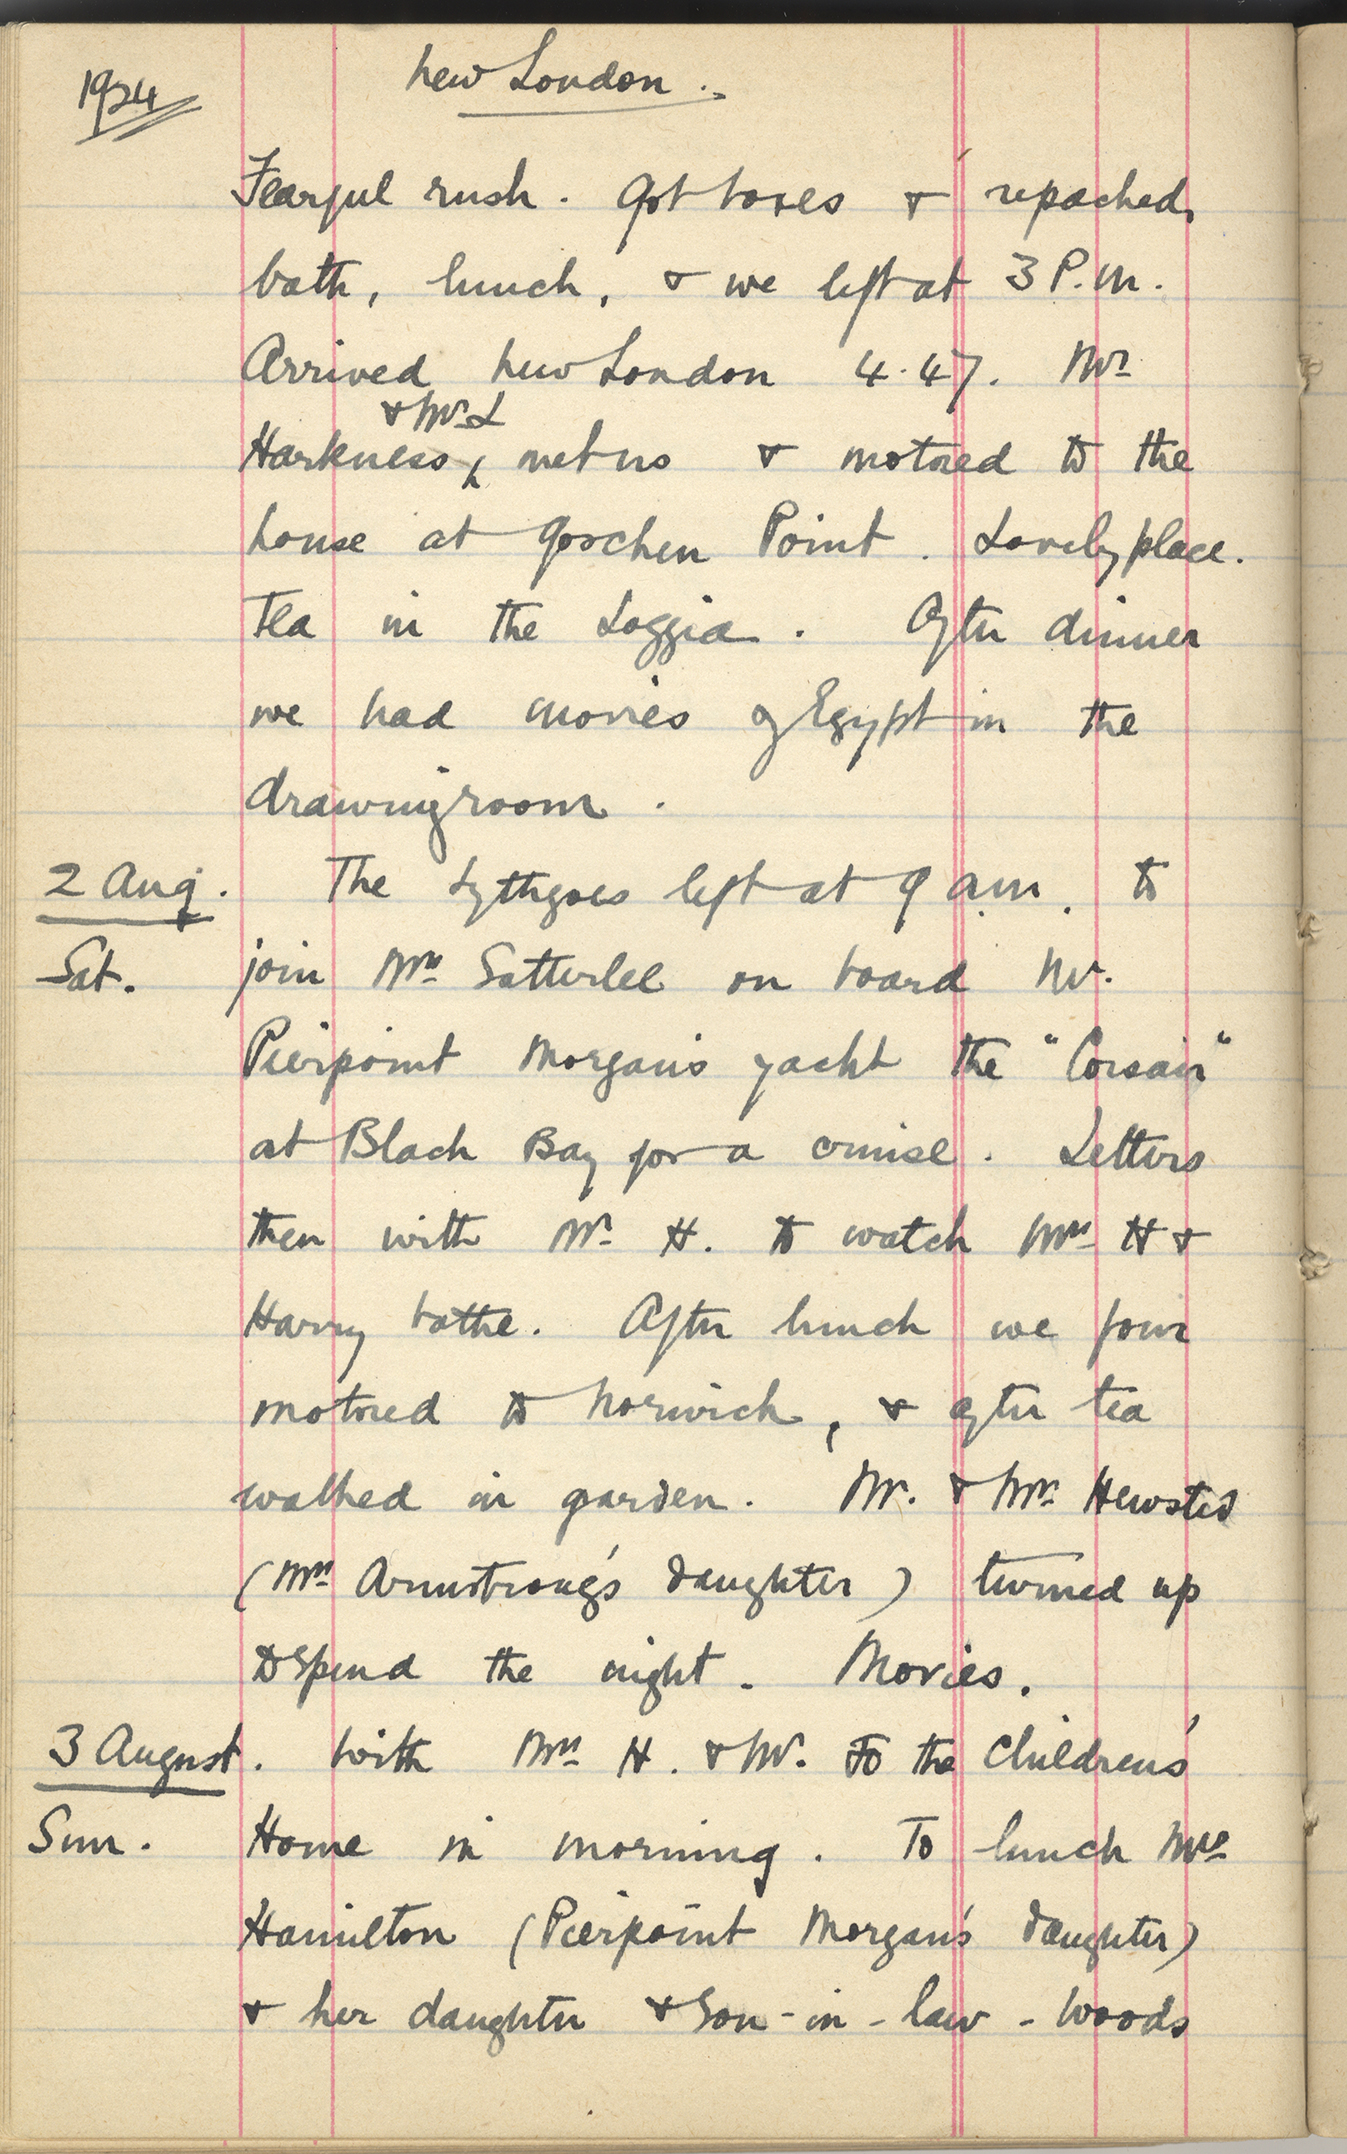 1924
New London.
Fearful rush. Got boxes & repacked,
bath, lunch, & we left at 3 P.m.
Arrived New London 4.47. Mr
& Mr. L
Harkness ⁁ met us & motored to the
house at Goschen Point. Lovely place.
Tea in the Loggia. After dinner
we had movies of Egypt in the
drawing room.
2 Aug. The Lythgoes left at 9 a.m. to
Sat. join Mrs Satterlee on board Mr.
Pierpoint Morgan's yacht the "Corsair"
at Black Bay for a cruise. Letters
then with Mr H. to watch Mrs H &
Harry bathe. After lunch we four
motored to Norwich, & after tea
walked in garden. Mr. & Mrs Hewsted
(Mrs Armstrong's daughter) turned up
to spend the night. Movies.
3 August. With Mrs H. & Mr. to the Children's
Sun. Home in morning. To lunch Mrs
Hamilton (Pierpoint Morgan's daughter)
& her daughter & Son-in-law - Woods